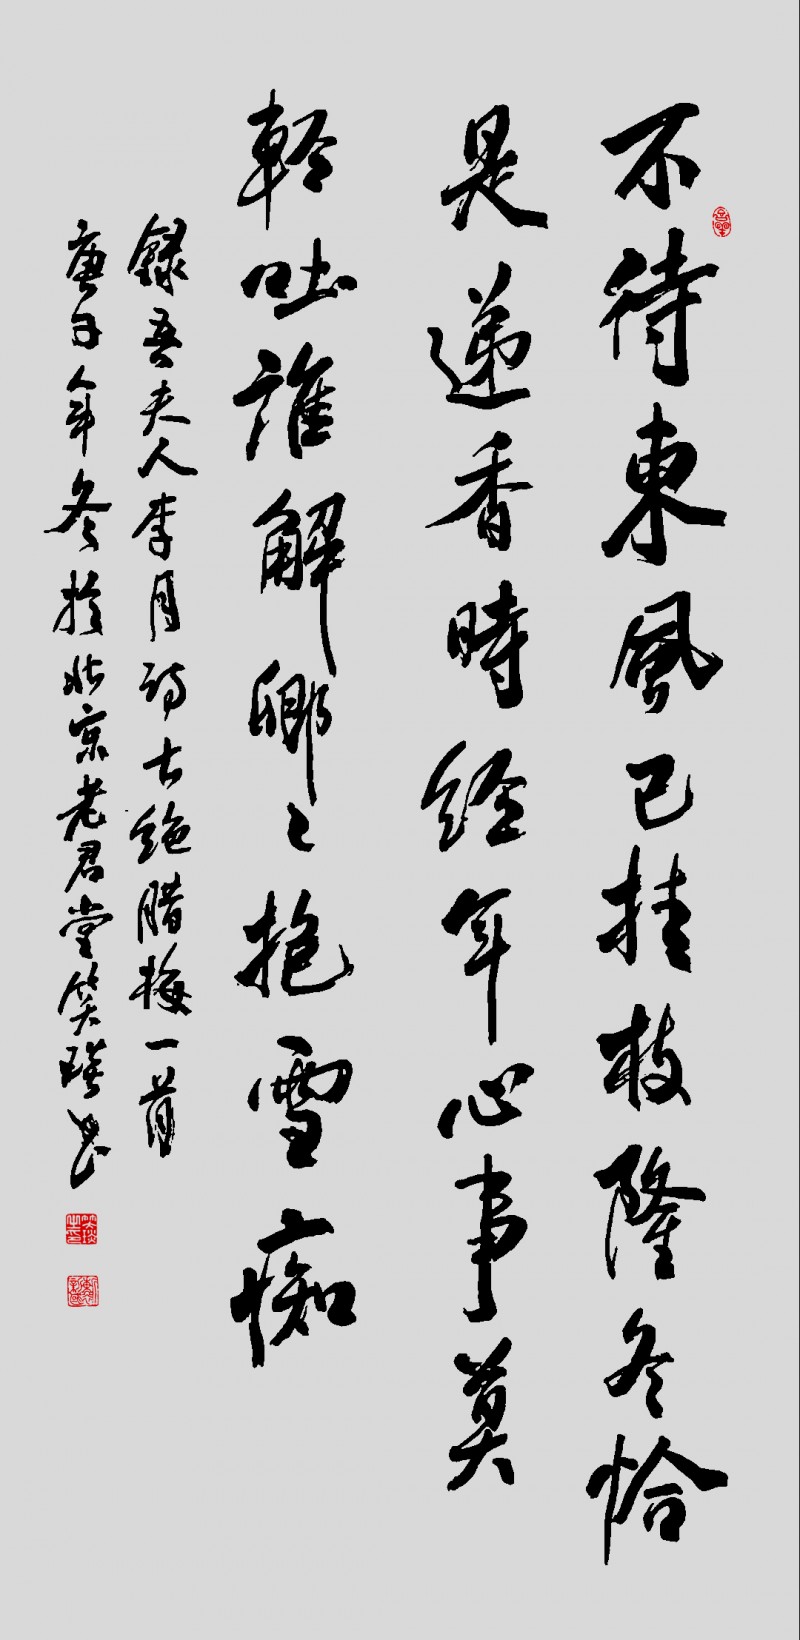 不待東風已挂枝隆冬恰
是递香時經年心事莫
輕吐誰解卿々抱雪痴
錄吾夫人李月詩七絶腊梅一首
庚子年冬於北京老君堂笑书